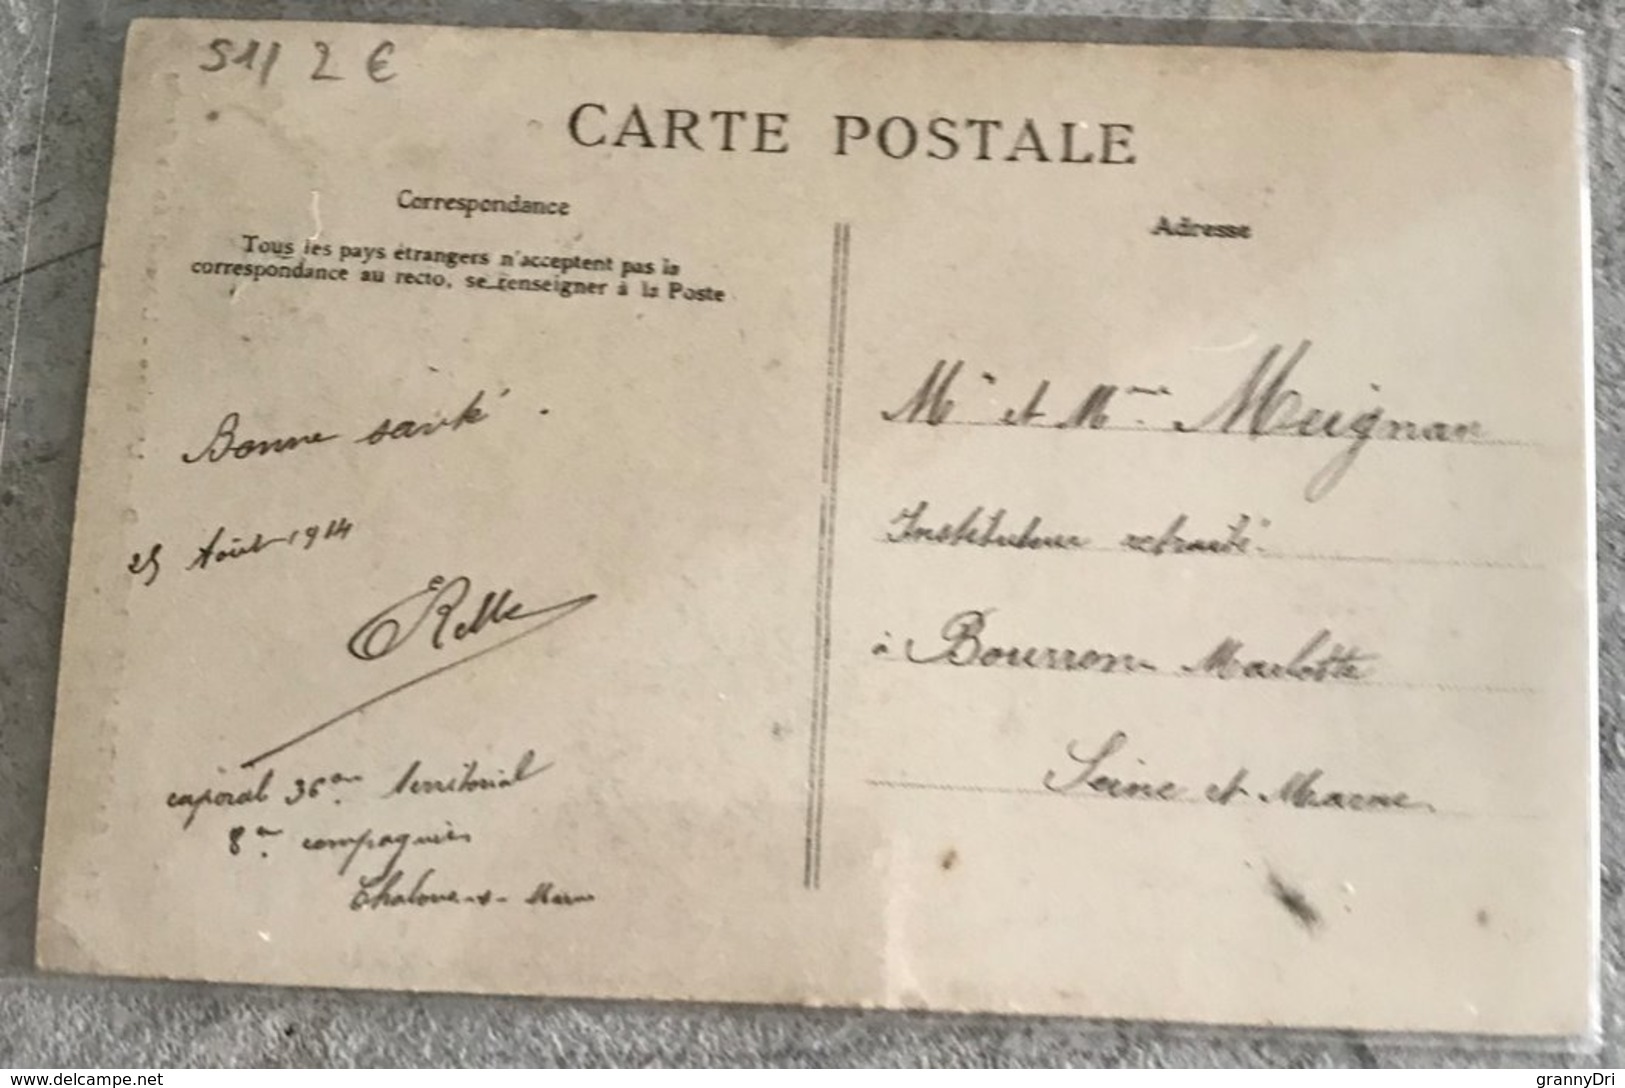 51/ 2 €
CARTE POSTALE
Correspondance
Tous les pays étrangers n'acceptent pas la
correspondance au recto, se renseigner à la Poste
Adresse
Bonne santé.
25 Août 1914
caporal 36ème territorial
8e compagnie
Chalons-s-Marne
Mr et Mme Meignan
Instituteur retraité
à Bourron Marlotte
Seine et Marne
www.delcampe.net
grannyDri